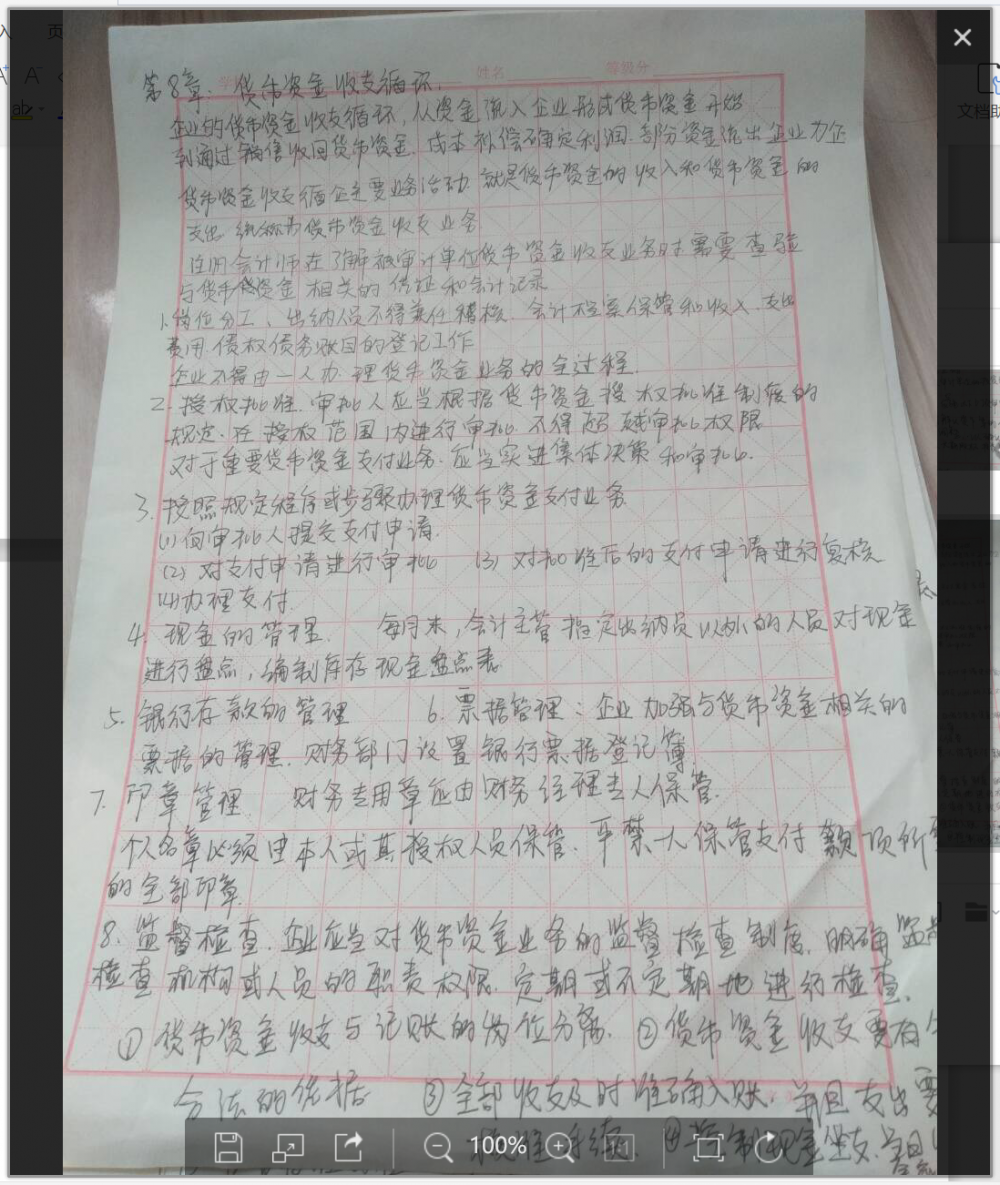 姓名 等级分
第8章 货币资金收支循环.
企业的货币资金收支循环,从资金流入企业形成货币资金开始
到通过销售收回货币资金.成本补偿确定利润.部分资金流出企业为止
货币资金收支循企主要业务活动.就是货币资金的收入和货币资金的
支出.统称为货币资金收支业务
注册会计师在了解被审计单位货币资金收支业务时需要查验
与货币资金相关的凭证和会计记录
1.岗位分工、出纳人员不得兼任稽核.会计档案保管和收入.支出
费用.债权债务账目的登记工作
企业不得由一人办理货币资金业务的全过程.
2.授权批准.审批人应当根据货币资金授权批准制度的
规定.在授权范围内进行审批.不得超越审批权限
对于重要货币资金支付业务.应当实进集体决策和审批.
3.按照规定程序或步骤办理货币资金支付业务
(1)向审批人提交支付申请.
(2)对支付申请进行审批 (3)对批准后的支付申请进行复核
(4)办理支付.
4.现金的管理. 每月末,会计主管指定出纳员以外的人员对现金
进行盘点,编制库存现金盘点表
5.银行存款的管理 6.票据管理:企业加强与货币资金相关的
票据的管理.财务部门设置银行票据登记簿.
7.印章管理 财务专用章应由财务经理专人保管.
个人名章必须由本人或其授权人员保管.严禁一人保管支付 项所
的全部印章.
8.监督检查.企业应当对货币资金业务的监督检查制度.明确监督
检查机构或人员的职责权限.定期或不定期地进行检查.
①货币资金收支与记账的岗位分离. ②货币资金收支要有
合法的依据 ③全部收支及时准确入账.并且支出要
手续. ④ 制现金坐支.当日
100%
文档助